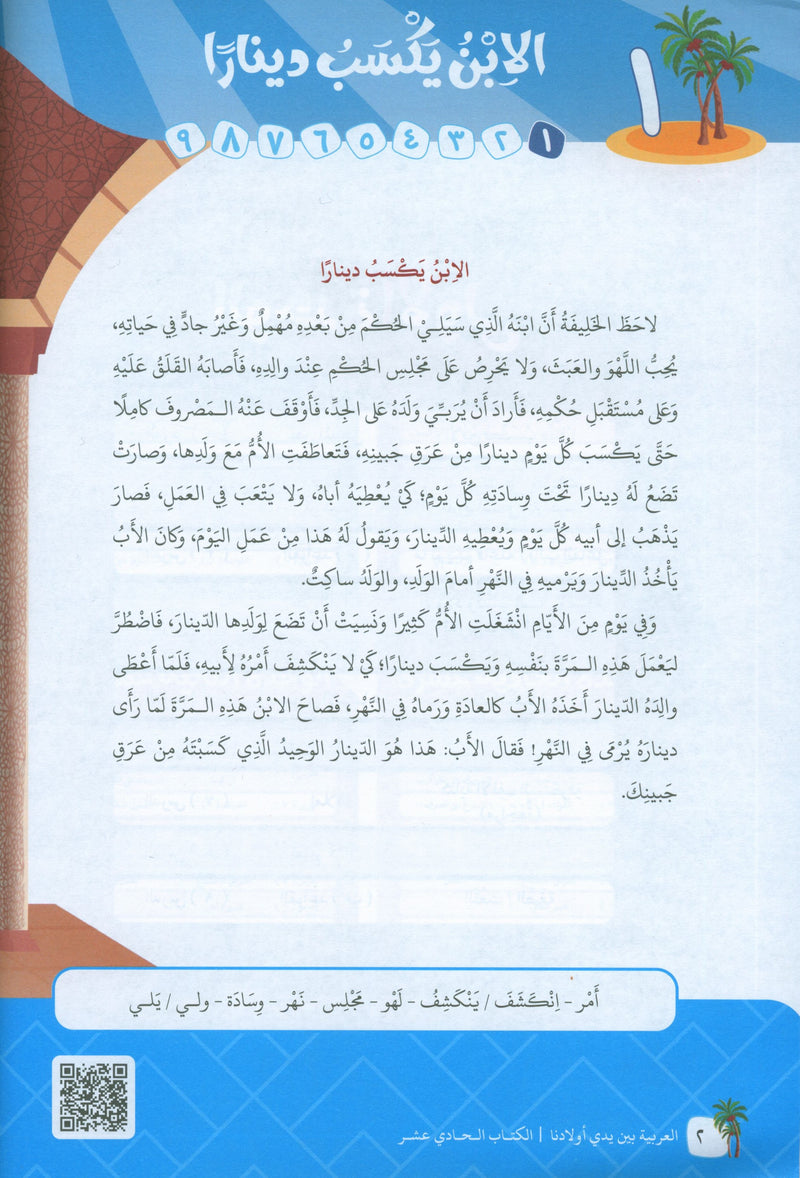 الاِبْنُ يَكْسَبُ دينارًا
١
١ ٢ ٣ ٤ ٥ ٦ ٧ ٨ ٩
الاِبْنُ يَكْسَبُ دينارًا
لاحَظَ الخَلِيفَةُ أَنَّ ابْنَهُ الَّذِي سَيَلِيْ الحُكْمَ مِنْ بَعْدِهِ مُهْمِلٌ وَغَيْرُ جادٍّ فِي حَياتِهِ،
يُحِبُّ اللَّهْوَ والعَبَثَ، وَلا يَحْرِصُ عَلَى مَجْلِسِ الحُكْمِ عِنْدَ والِدِهِ، فَأَصابَهُ القَلَقُ عَلَيْهِ
وَعَلى مُسْتَقْبَلِ حُكْمِهِ، فَأَرادَ أَنْ يُرَبِّيَ وَلَدَهُ عَلى الجِدِّ، فَأَوْقَفَ عَنْهُ الـمَصْروفَ كامِلًا
حَتَّى يَكْسَبَ كُلَّ يَوْمٍ دينارًا مِنْ عَرَقِ جَبينِهِ، فَتَعاطَفَتِ الأُمُّ مَعَ وَلَدِها، وَصارَتْ
تَضَعُ لَهُ دِينارًا تَحْتَ وِسادَتِهِ كُلَّ يَوْمٍ؛ كَيْ يُعْطِيَهُ أباهُ، وَلا يَتْعَبَ فِي العَمَلِ، فَصارَ
يَذْهَبُ إلى أبيه كُلَّ يَوْمٍ وَيُعْطيهِ الدِّينارَ، وَيَقولُ لَهُ هَذا مِنْ عَمَلِ اليَوْمَ، وَكانَ الأَبُ
يَأْخُذُ الدِّينارَ وَيَرْميهِ فِي النَّهْرِ أمامَ الوَلَدِ، والوَلَدُ ساكِتٌ.
وَفِي يَوْمٍ مِنَ الأَيّامِ انْشَغَلَتِ الأُمُّ كَثِيرًا وَنَسِيَتْ أَنْ تَضَعَ لِوَلَدِها الدّينارَ، فَاضْطُرَّ
ليَعْمَلَ هَذِهِ الـمَرَّةَ بنَفْسِهِ وَيَكْسَبَ دينارًا؛ كَيْ لا يَنْكَشِفَ أَمْرُهُ لِأَبيهِ، فَلَمّا أَعْطَى
والِدَهُ الدّينارَ أَخَذَهُ الأَبُ كالعادَةِ وَرَماهُ فِي النَّهْرِ، فَصاحَ الابْنُ هَذِهِ الـمَرَّةَ لَمّا رَأَى
دينارَهُ يُرْمَى فِي النَّهْرِ! فَقالَ الأَبُ: هَذا هُوَ الدّينارُ الوَحِيدُ الَّذِي كَسَبْتَهُ مِنْ عَرَقِ
جَبينِكَ.
أَمْر - اِنْكَشَفَ / يَنْكَشِفُ - لَهْو - مَجْلِس - نَهْر - وِسَادَة - ولـي / يَلـي
٢ العربية بين يدي أولادنا | الكتاب الـحـادي عشـر